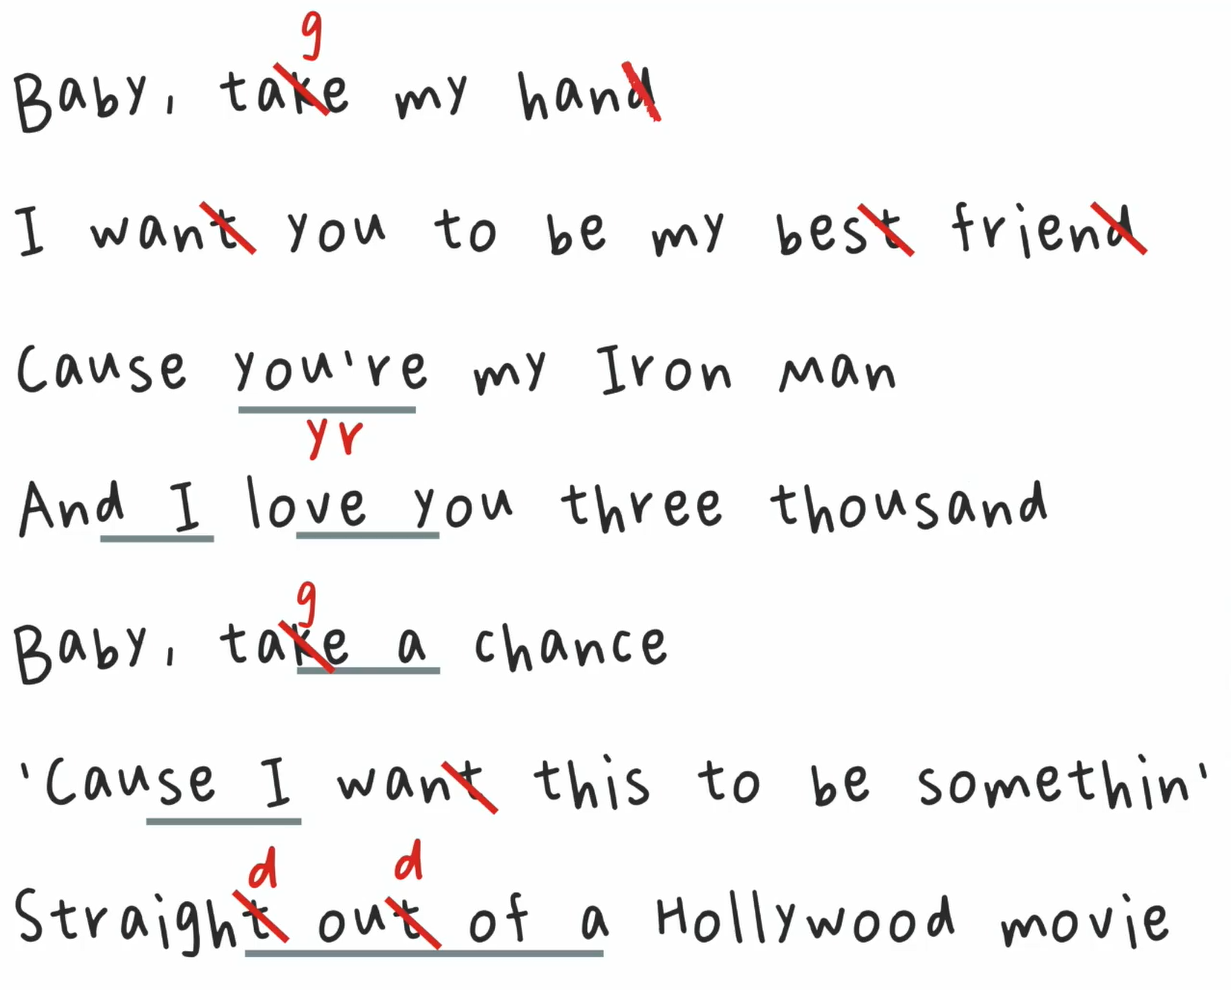 g
Baby, take my hand
I want you to be my best friend
Cause you're my Iron Man
yr
And I love you three thousand
g
Baby, take a chance
'Cause I want this to be somethin'
d d
Straight out of a Hollywood movie